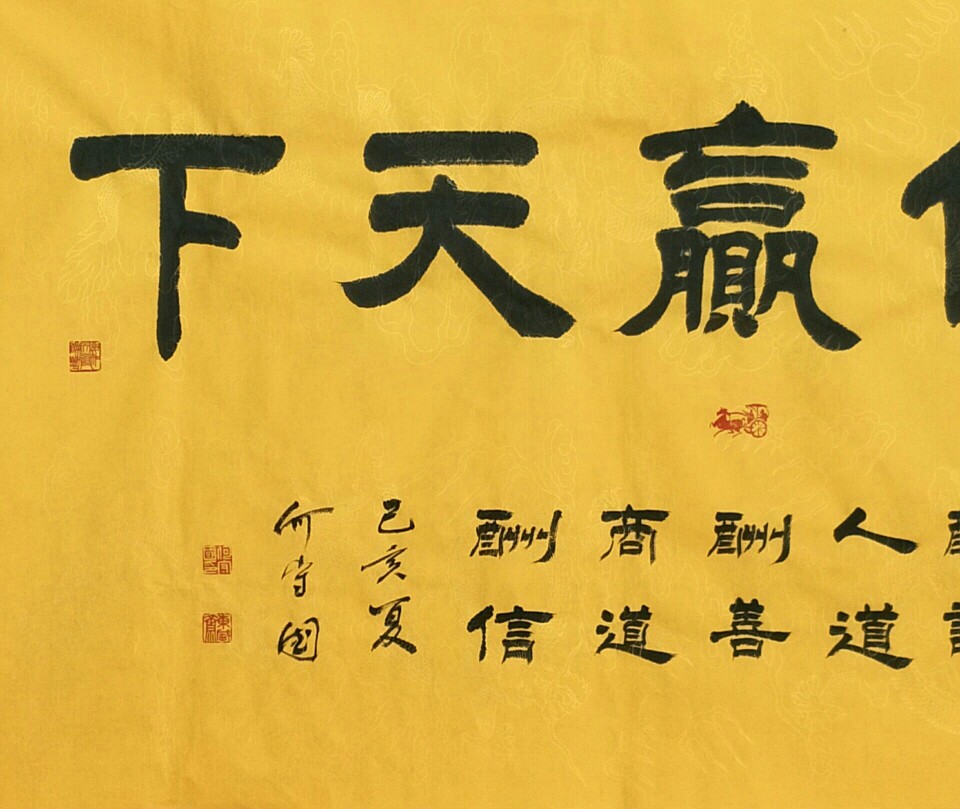 贏天下
人道
酬善
商道
酬信
己亥夏
何守國